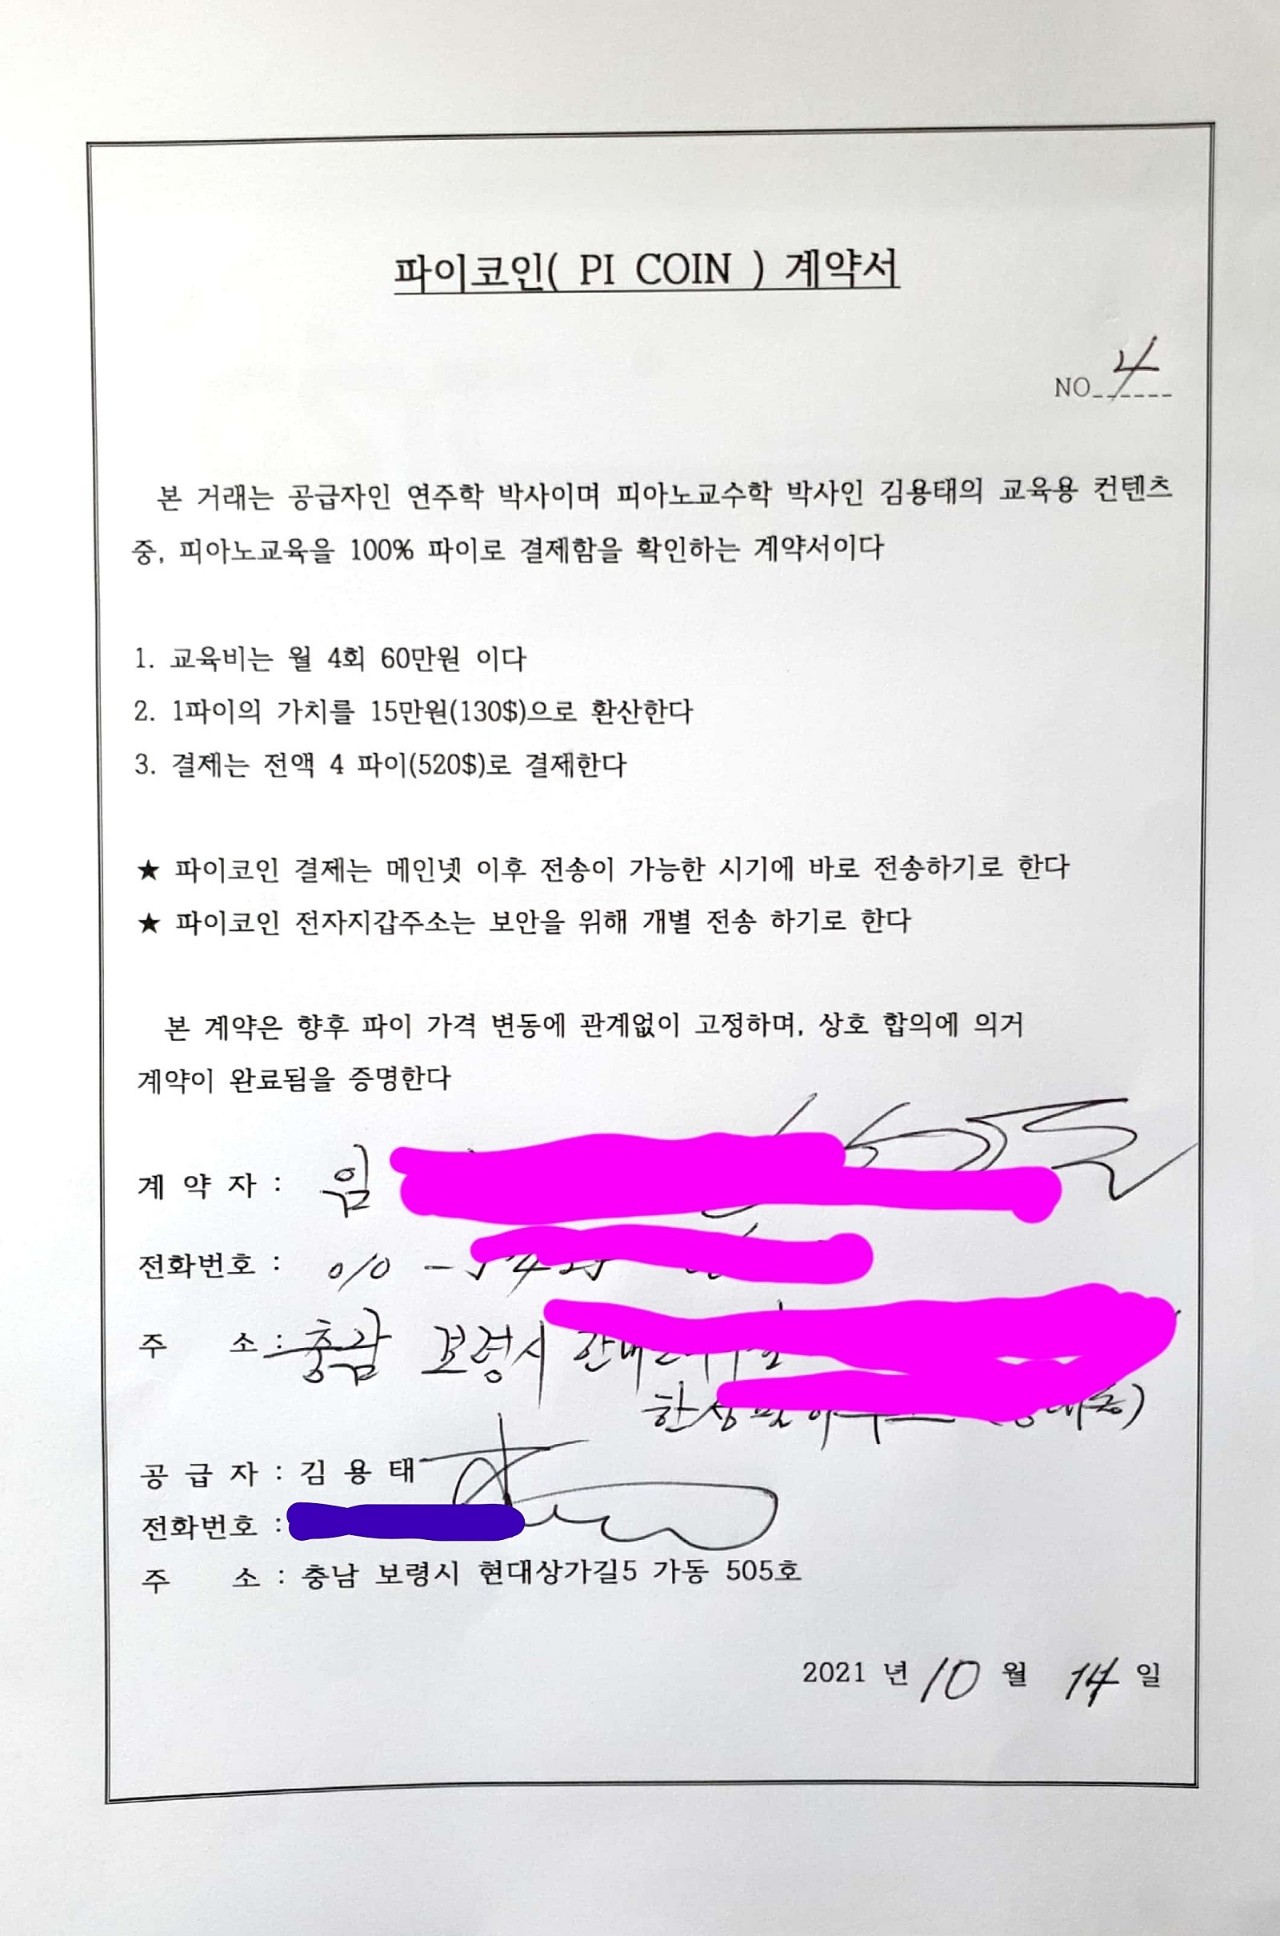 파이코인( PI COIN ) 계약서
NO 4
본 거래는 공급자인 연주학 박사이며 피아노교수학 박사인 김용태의 교육용 컨텐츠
중, 피아노교육을 100% 파이로 결제함을 확인하는 계약서이다
1. 교육비는 월 4회 60만원 이다
2. 1파이의 가치를 15만원(130$)으로 환산한다
3. 결제는 전액 4 파이(520$)로 결제한다
★ 파이코인 결제는 메인넷 이후 전송이 가능한 시기에 바로 전송하기로 한다
★ 파이코인 전자지갑주소는 보안을 위해 개별 전송 하기로 한다
본 계약은 향후 파이 가격 변동에 관계없이 고정하며, 상호 합의에 의거
계약이 완료됨을 증명한다
계 약 자 : 임
전화번호 : 010 -
주 소 : 충남 보령시
공 급 자 : 김 용 태
전화번호 :
주 소 : 충남 보령시 현대상가길5 가동 505호
2021 년 10 월 14 일